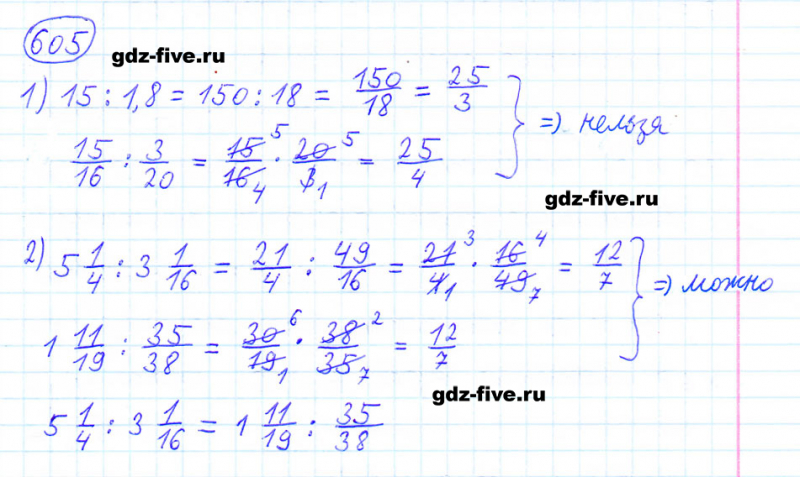 605
gdz-five.ru
1) 15 : 1,8 = 150 : 18 = 150/18 = 25/3
15/16 : 3/20 = 15/16 5 4 · 20/3 5 1 = 25/4 } => нельзя
gdz-five.ru
2) 5 1/4 : 3 1/16 = 21/4 : 49/16 = 21/4 3 1 · 16/49 4 7 = 12/7
1 11/19 : 35/38 = 30/19 6 1 · 38/35 2 7 = 12/7 } => можно
gdz-five.ru
5 1/4 : 3 1/16 = 1 11/19 : 35/38